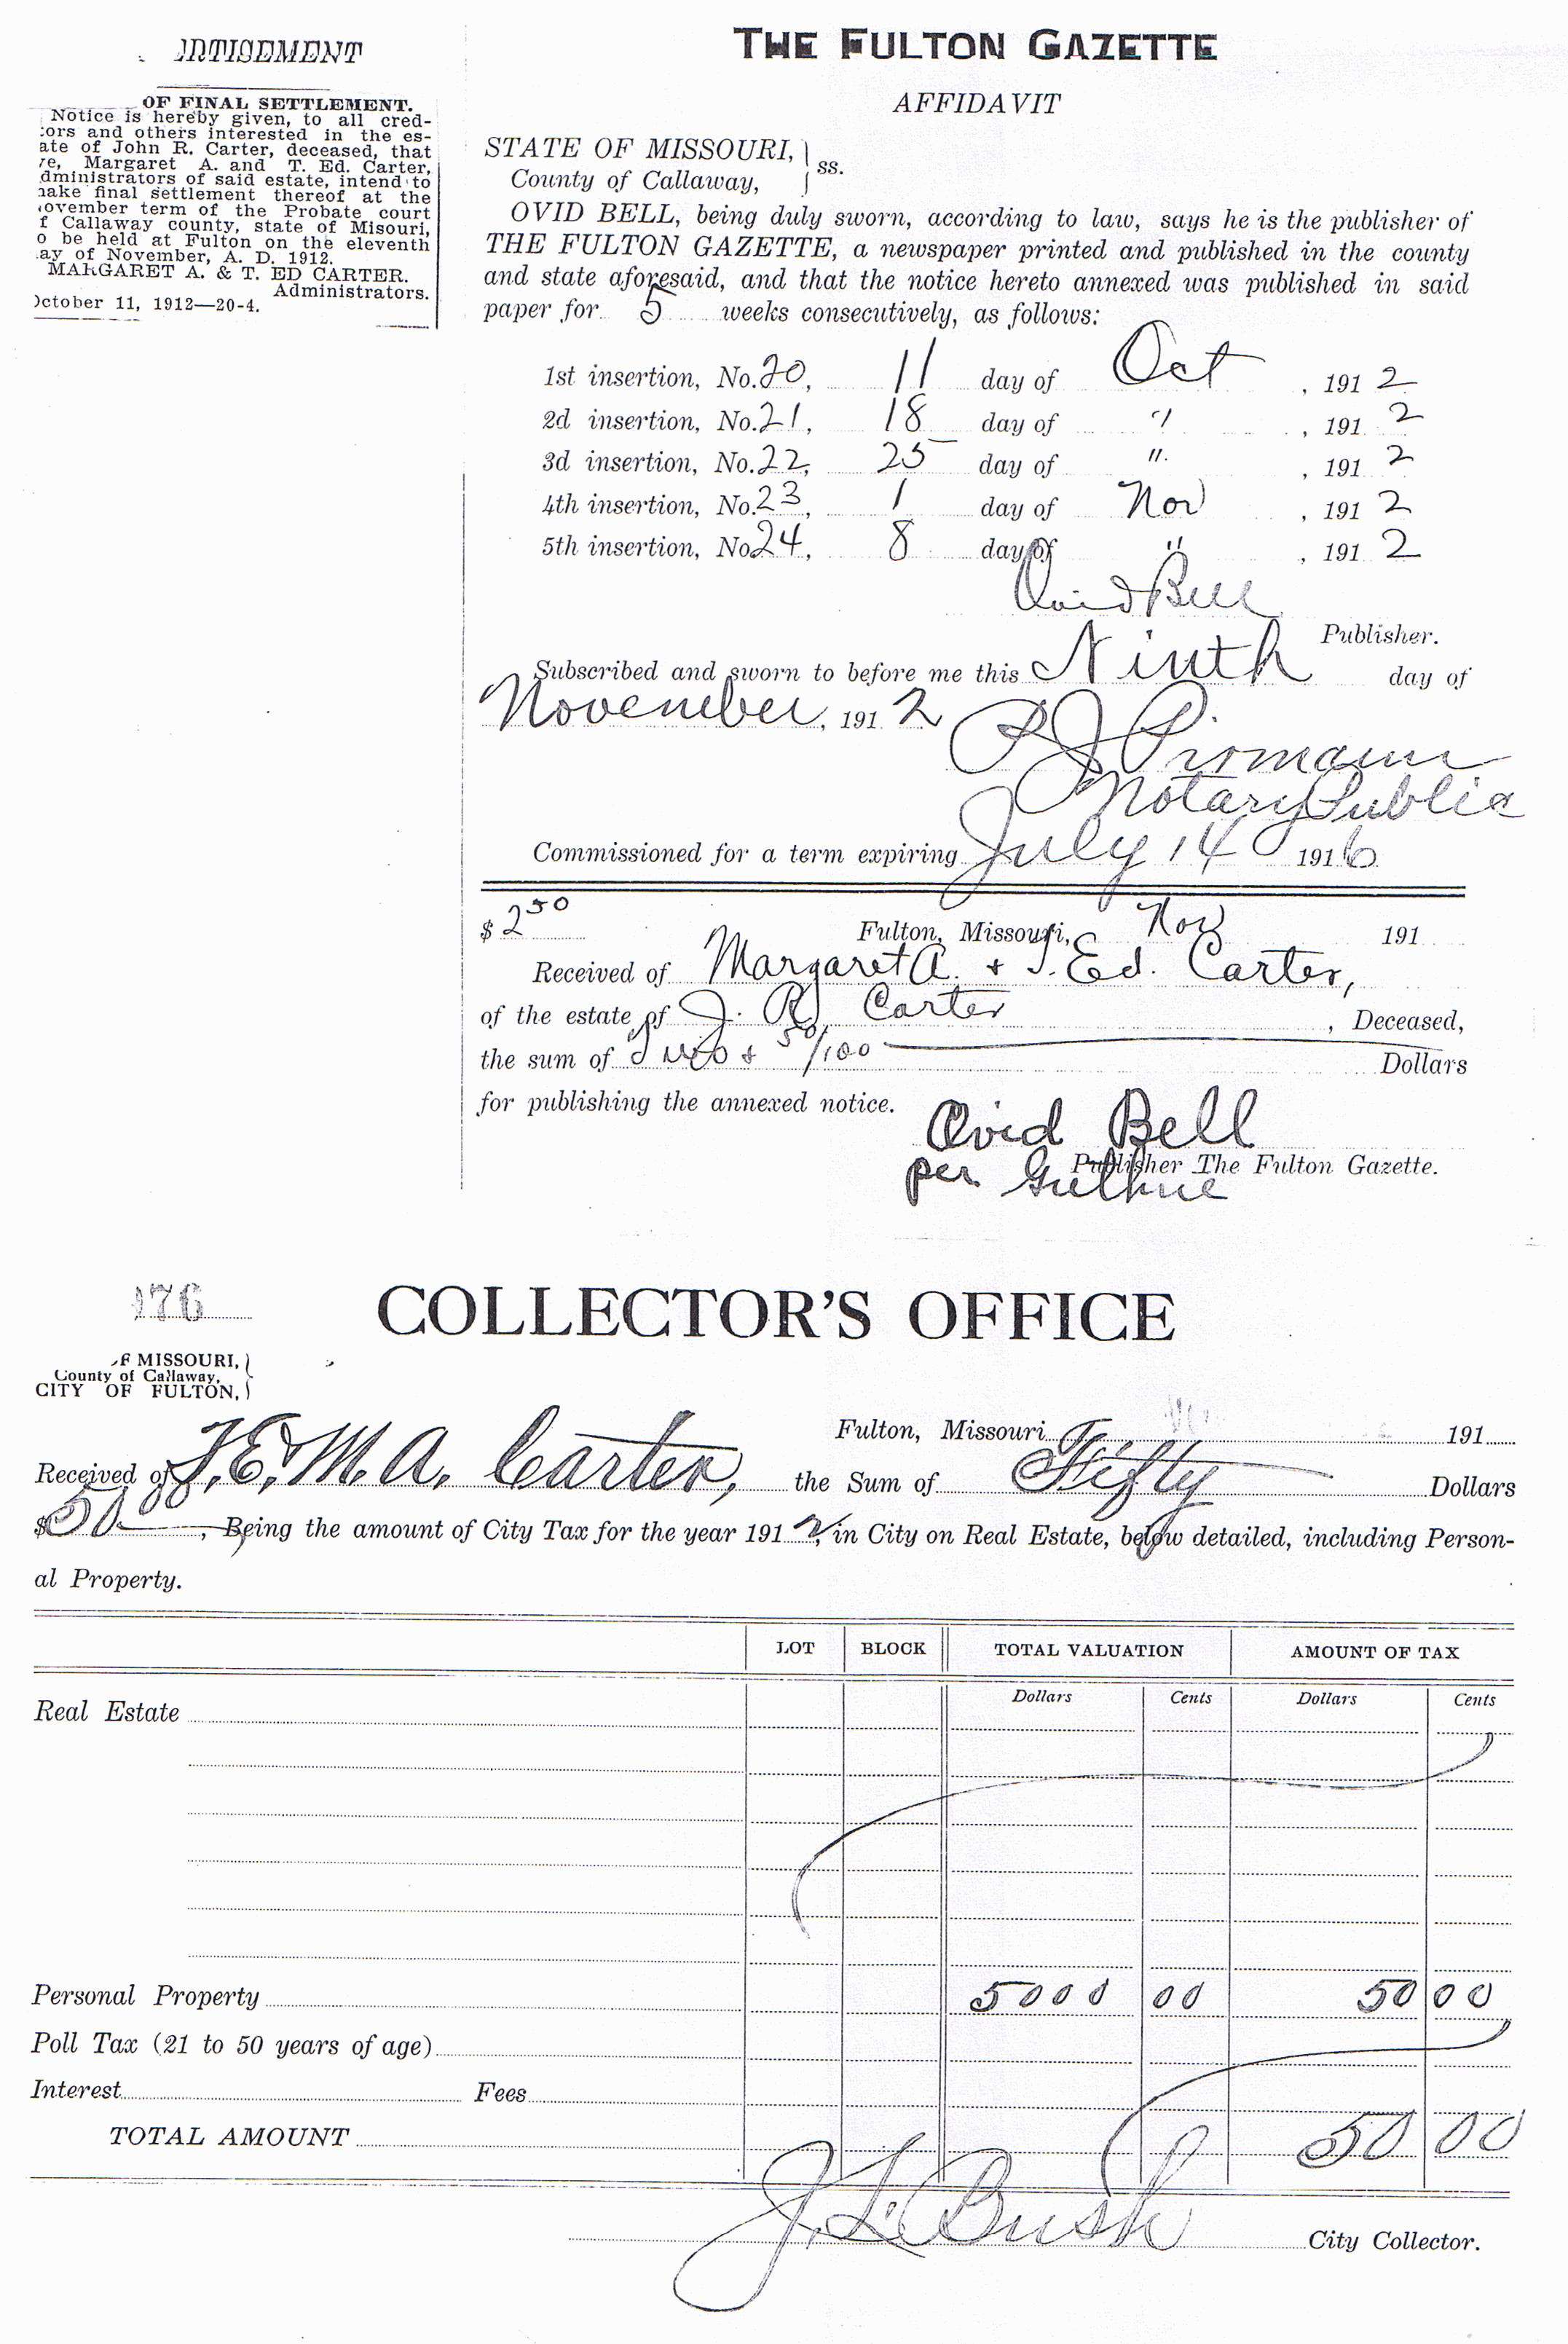 RTISEMENT
OF FINAL SETTLEMENT.
Notice is hereby given, to all cred-
ors and others interested in the es-
ate of John R. Carter, deceased, that
re, Margaret A. and T. Ed. Carter,
dministrators of said estate, intend to
nake final settlement thereof at the
ovember term of the Probate court
f Callaway county, state of Misouri,
o be held at Fulton on the eleventh
ay of November, A. D. 1912.
MARGARET A. & T. ED CARTER.
Administrators.
October 11, 1912—20-4.
THE FULTON GAZETTE
AFFIDAVIT
STATE OF MISSOURI, } ss.
County of Callaway,
OVID BELL, being duly sworn, according to law, says he is the publisher of
THE FULTON GAZETTE, a newspaper printed and published in the county
and state aforesaid, and that the notice hereto annexed was published in said
paper for 5 weeks consecutively, as follows:
1st insertion, No. 20, 11 day of Oct , 191 2
2d insertion, No. 21, 18 day of " , 191 2
3d insertion, No. 22, 25 day of " , 191 2
4th insertion, No. 23, 1 day of Nov , 191 2
5th insertion, No. 24, 8 day of " , 191 2
Ovid Bell
Publisher.
Subscribed and sworn to before me this Ninth day of
November, 191 2
Notary Public
Commissioned for a term expiring July 14 191 6
$ 2 50 Fulton, Missouri, Nov 191
Received of Margaret A. + T. Ed. Carter,
of the estate of J. R. Carter , Deceased,
the sum of Two + 50/100 Dollars
for publishing the annexed notice.
Ovid Bell
Publisher The Fulton Gazette.
per Guthrie
76
COLLECTOR'S OFFICE
F MISSOURI, }
County of Callaway,
CITY OF FULTON,
Fulton, Missouri 191
Received of T. E. & M. A. Carter, the Sum of Fifty Dollars
$50 00, Being the amount of City Tax for the year 191 2, in City on Real Estate, below detailed, including Person-
al Property.
LOT BLOCK TOTAL VALUATION AMOUNT OF TAX
Dollars Cents Dollars Cents
Real Estate
Personal Property 5000 00 50 00
Poll Tax (21 to 50 years of age)
Interest Fees
TOTAL AMOUNT 50 00
J. L. Bush
City Collector.